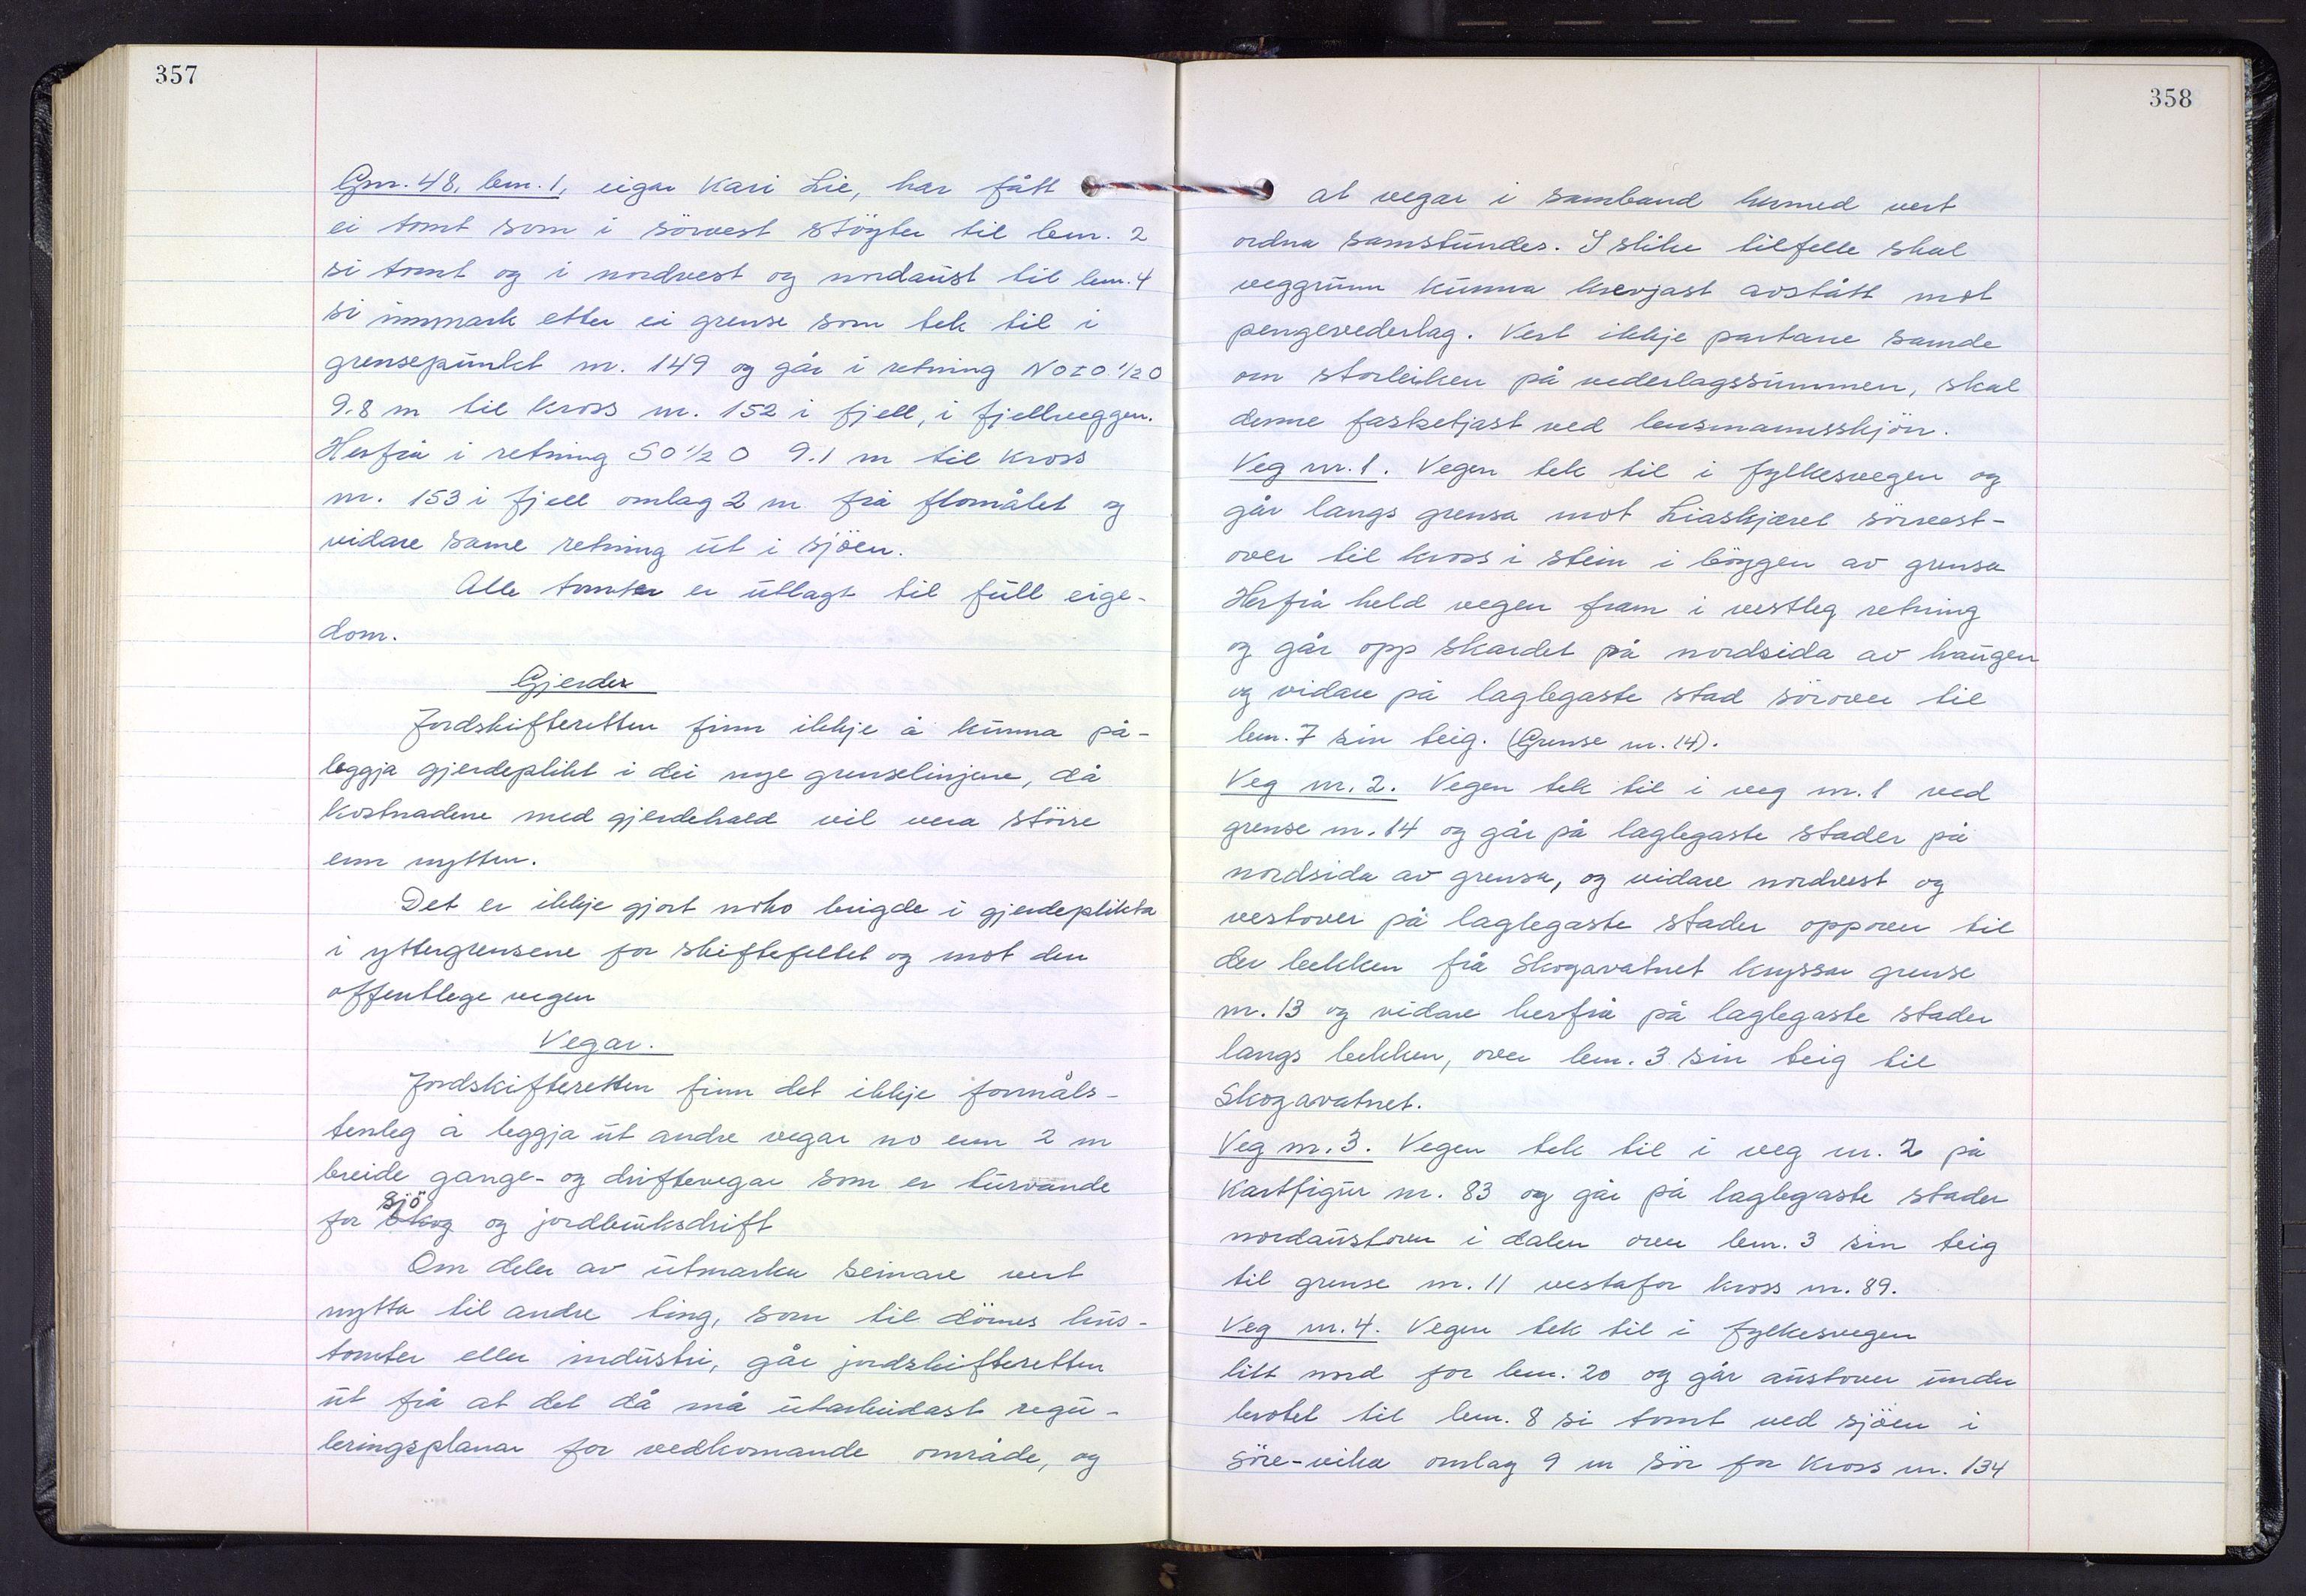 357
Gnr. 48, bnr. 1, eigar Kari Lie, har fått
ei tomt som i sörvest stöyter til bnr. 2
si tomt og i nordvest og nordaust til bnr. 4
si innmark etter ei grense som tek til i
grensepunkt nr. 149 og går i retning NOzO ½ O
9.8 m til kross nr. 152 i fjell, i fjellveggen.
Herfrå i retning SO ½ O 9.1 m til kross
nr. 153 i fjell omlag 2 m frå flomålet og
vidare same retning ut i sjöen.
Alle tomter er utlagt til full eige-
dom.
Gjerder
Jordskifteretten finn ikkje å kunna på-
leggja gjerdeplikt i dei nye grenselinjene, då
kostnadene med gjerdehald vil vera större
enn nytten.
Det er ikkje gjort noko brigde i gjerdeplikta
i yttergrensene for skiftefeltet og mot den
offentlege vegen
Vegar.
Jordskifteretten finn det ikkje formåls-
tenleg å leggja ut andre vegar no enn 2 m
breide gange- og driftevegar som er turvande
sjö
for skog og jordbruksdrift
Om deler av utmarka seinare vert
nytta til andre ting, som til dömes hus-
tomter eller industri, går jordskifteretten
ut frå at det då må utarbeidast regu-
leringsplanar for vedkomande område, og
358
at vegar i samband hermed vert
ordna samstundes. I slike tilfelle skal
veggrunn kunna krevjast avstått mot
pengevederlag. Vert ikkje partane samde
om storleiken på vederlagssummen, skal
denne fastsetjast ved lensmannsskjön.
Veg nr. 1. Vegen tek til i fylkesvegen og
går langs grensa mot Liaskjæret sörvest-
over til kross i stein i böygen av grensa
Herfrå held vegen fram i vestleg retning
og går opp skardet på nordsida av haugen
og vidare på laglegaste stad sörover til
bnr. 7 sin teig. (Grense nr. 14).
Veg nr. 2. Vegen tek til i veg nr. 1 ved
grense nr. 14 og går på laglegaste stader på
nordsida av grensa, og vidare nordvest og
vestover på laglegaste stader oppover til
der bekken frå Skogavatnet kryssar grense
nr. 13 og vidare herfrå på laglegaste stader
langs bekken, over bnr. 3 sin teig til
Skogavatnet.
Veg nr. 3. Vegen tek til i veg nr. 2 på
Kartfigur nr. 83 og går på laglegaste stader
nordaustover i dalen over bnr. 3 sin teig
til grense nr. 11 vestafor kross nr. 89.
Veg nr. 4. Vegen tek til i fylkesvegen
litt nord for bnr. 20 og går austover under
brotet til bnr. 8 si tomt ved sjöen i
Söre-vika omlag 9 m sör for kross nr. 134